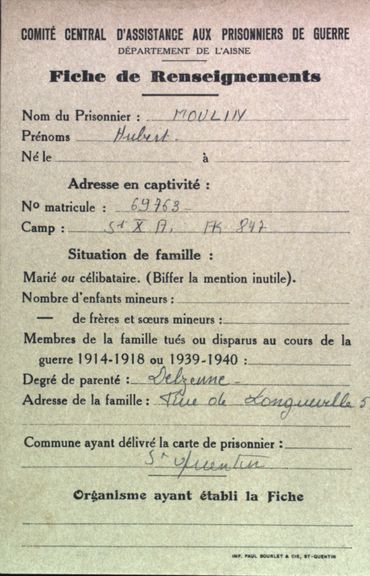 COMITÉ CENTRAL D'ASSISTANCE AUX PRISONNIERS DE GUERRE
DÉPARTEMENT DE L'AISNE
Fiche de Renseignements
Nom du Prisonnier : MOULIN
Prénoms Hubert
Né le à
Adresse en captivité :
No matricule : 69763
Camp : St X A. AK 847
Situation de famille :
Marié ou célibataire. (Biffer la mention inutile).
Nombre d'enfants mineurs :
— de frères et sœurs mineurs :
Membres de la famille tués ou disparus au cours de la
guerre 1914-1918 ou 1939-1940 :
Degré de parenté : Delzenne
Adresse de la famille : Rue de Longueville 5
Commune ayant délivré la carte de prisonnier :
St Quentin
Organisme ayant établi la Fiche
IMP. PAUL BOURLET & CIE, ST-QUENTIN